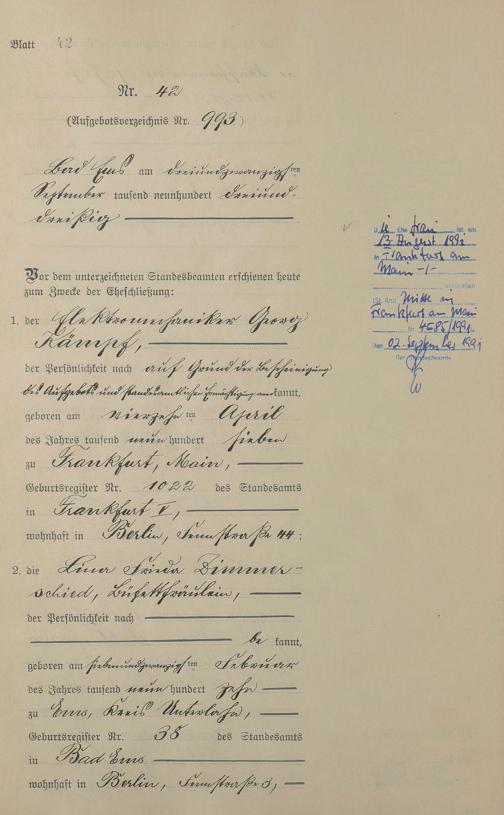 Blatt 42
Nr. 42
(Aufgebotsverzeichnis Nr. 993)
Bad Ems am dreiundzwanzigsten
September tausend neunhundert dreiund-
dreißig
Vor dem unterzeichneten Standesbeamten erschienen heute
zum Zwecke der Eheschließung:
1. der Elektromechaniker Georg
Kämpf,
der Persönlichkeit nach auf Grund der Bescheinigung
des Aufgebots und standesamtlichen Ermächtigung anerkannt,
geboren am vierzehnten April
des Jahres tausend neunhundert sieben
zu Frankfurt, Main,
Geburtsregister Nr. 1022 des Standesamts
in Frankfurt V,
wohnhaft in Berlin, Fennstraße 44;
2. die Lina Frieda Zimmer-
schied, Büfettfräulein,
der Persönlichkeit nach
bekannt,
geboren am siebenundzwanzigsten Februar
des Jahres tausend neunhundert zehn
zu Ems, Kreis Unterlahn,
Geburtsregister Nr. 38 des Standesamts
in Bad Ems
wohnhaft in Berlin, Fennstraße 3,
Die Ehefrau ist am
13. August 1991
in Frankfurt am
Main -/-
verstorben
(St. Amt Mitte in
Frankfurt am Main
Nr. 4585/1991
Den 02. September 1991
Der Standesbeamte